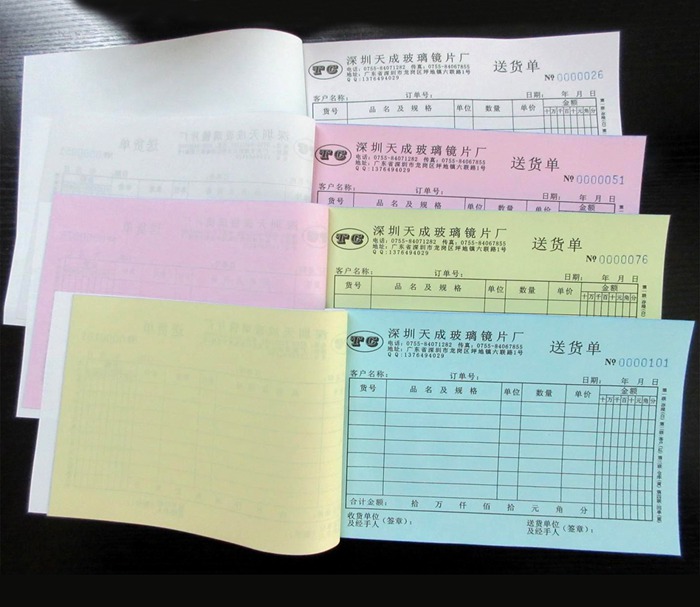 TC
深圳天成玻璃镜片厂
送货单
电话：0755-84071282 传真：0755-84067855
地址：广东省深圳市龙岗区坪地镇六联路1号
QQ:1376494029
№ 0000026
客户名称： 订单号： 日期： 年 月 日
货号 品名及规格 单位 数量 单价 金额
十 万 千 百 十 元 角 分
TC
深圳天成玻璃镜片厂
送货单
电话：0755-84071282 传真：0755-84067855
地址：广东省深圳市龙岗区坪地镇六联路1号
QQ:1376494029
№ 0000051
客户名称： 订单号： 日期： 年 月 日
货号 品名及规格 单位 数量 单价 金额
十 万 千 百 十 元 角 分
TC
深圳天成玻璃镜片厂
送货单
电话：0755-84071282 传真：0755-84067855
地址：广东省深圳市龙岗区坪地镇六联路1号
QQ:1376494029
№ 0000076
客户名称： 订单号： 日期： 年 月 日
货号 品名及规格 单位 数量 单价 金额
十 万 千 百 十 元 角 分
TC
深圳天成玻璃镜片厂
送货单
电话：0755-84071282 传真：0755-84067855
地址：广东省深圳市龙岗区坪地镇六联路1号
QQ:1376494029
№ 0000101
客户名称： 订单号： 日期： 年 月 日
货号 品名及规格 单位 数量 单价 金额
十 万 千 百 十 元 角 分
合计金额： 拾 万 仟 佰 拾 元 角 分
收货单位及经手人（签章）： 送货单位及经手人（签章）：